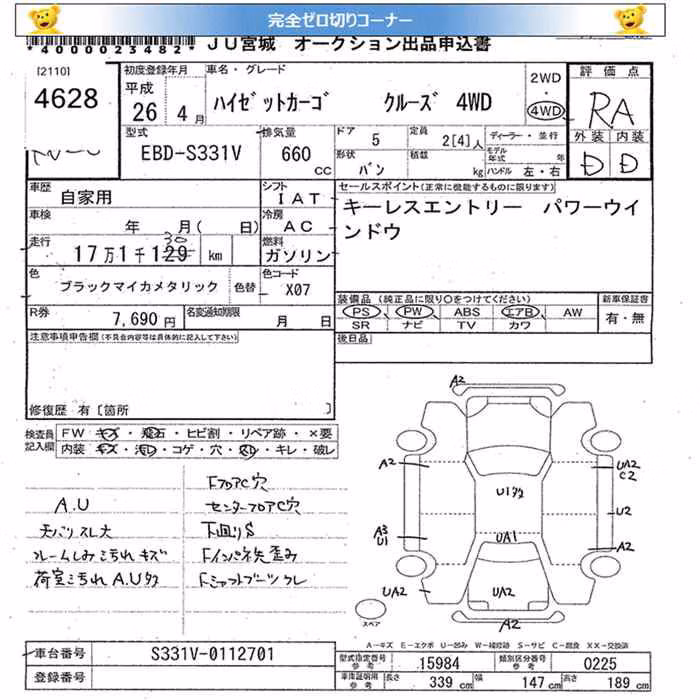 完全ゼロ切りコーナー
*4000023482* JU宮城 オークション出品申込書
[2110]
4628
初度登録年月
平成
26 4月
車名・グレード
ハイゼットカーゴ クルーズ 4WD
2WD
・
4WD
評価点
RA
外装 内装
D D
型式
EBD-S331V
排気量
660 CC
ドア 5
定員 2[4]人
形状 バン
積載 kg
ディーラー・並行
モデル年式 年
ハンドル 左・右
車歴 自家用
シフト IAT
車検 年 月( 日)
冷房 AC
走行 17万1千129 km
30
燃料 ガソリン
色 ブラックマイカメタリック 色替
色コード X07
R券 7,690円
名変通知期限 月 日
セールスポイント(正常に機能するものに限ります)
キーレスエントリー パワーウイ
ンドウ
装備品(純正品に限り○をつけてください)
新車保証書
PS ・ PW ・ ABS ・ エアB ・ AW
SR ・ ナビ ・ TV ・ カワ
有・無
後日品
注意事項申告欄(不具合内容等は具体的に記入して下さい)
修復歴 有[箇所 ]
検査員記入欄
FW キズ・飛石・ヒビ割・リペア跡・×要
内装 キズ・汚レ・コゲ・穴・スレ・キレ・破レ
A.U
天バリスレ大
フレームしみこぢれキズ
荷室こぢれ A.Uタタ
FフロアC穴
センターフロアC穴
下回りS
Fインパネ先歪み
Fシャフトブーツクレ
A2
A2
UA2
C2
U1タタ
U2
A3
U1
UA1
A2
UA2
UA2
A2
スペア
A-キズ E-エクボ U-凹み W-補修跡 S-サビ C-腐食 XX-交換済
車台番号 S331V-0112701
登録番号
型式指定番号参考 15984
類別区分番号参考 0225
車庫証明用参考
長さ 339 cm
幅 147 cm
高さ 189 cm